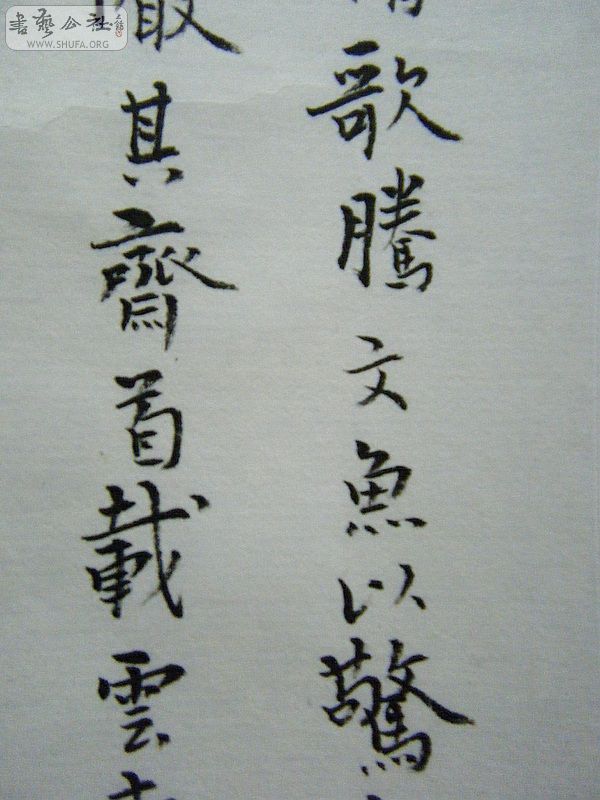 書藝公社
WWW.SHUFA.ORG
歌騰文魚以驚
其齊首載雲